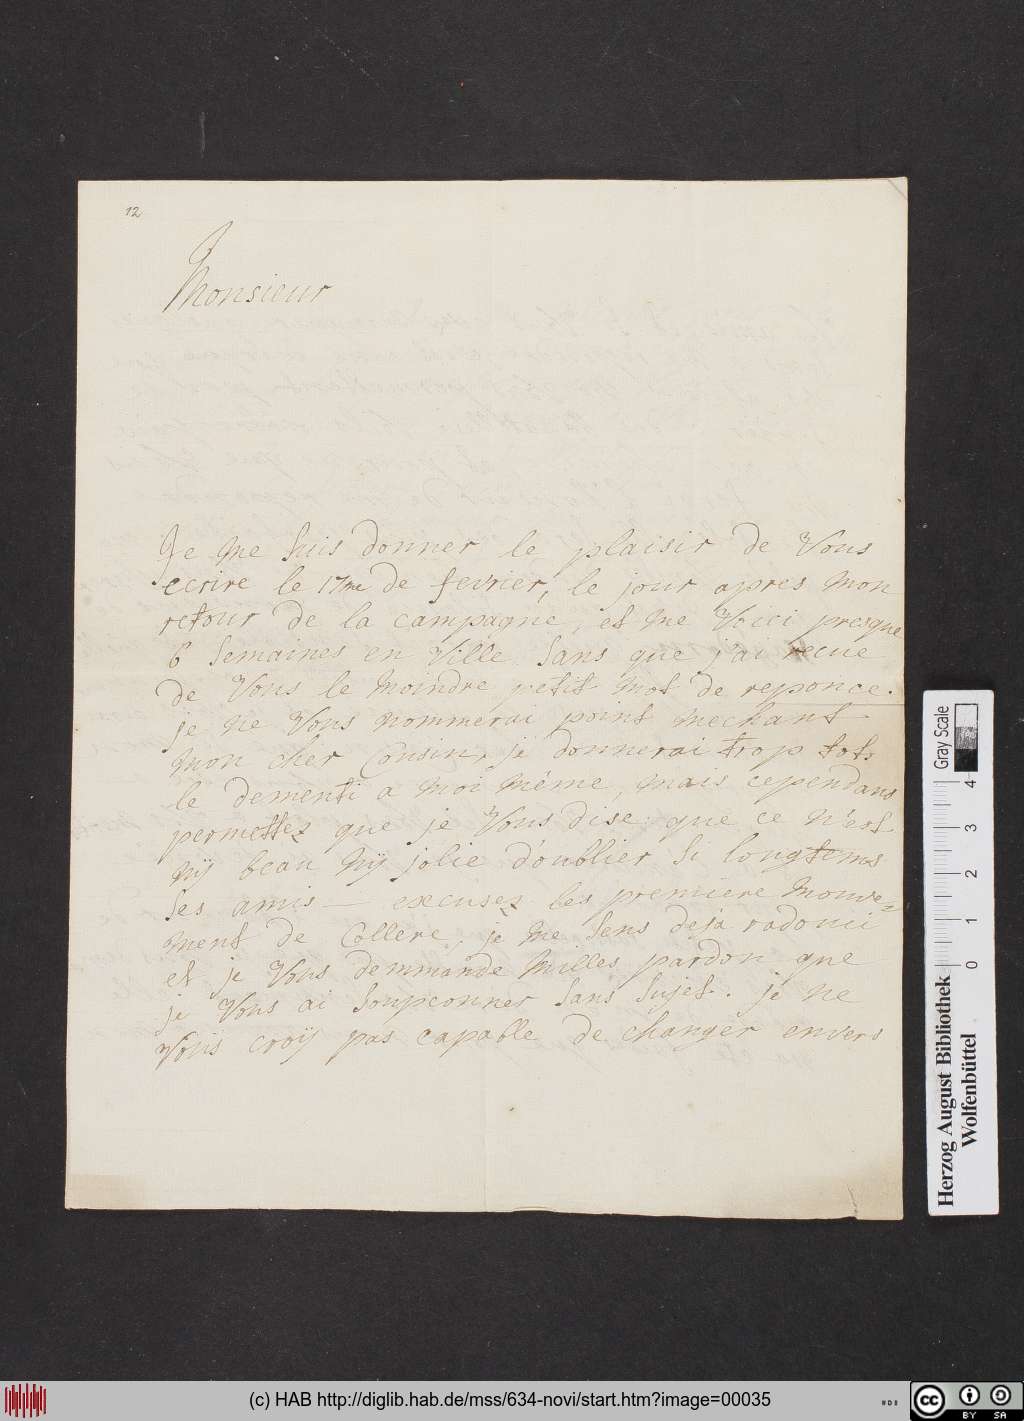 12
Monsieur
Je me suis donner le plaisir de Vous
ecrire le 17me de fevrier, le jour apres mon
retour de la campagne, et me Voici presque
6 semaines en Ville sans que j'ai recue
de Vous le moindre petit mot de reponce.
je ne Vous nommerai point mechant
mon cher Cousin, je donnerai trop tots
le dementi a moi même, mais cependans
permettez que je Vous dise que ce n'est
nÿ beau nÿ jolie d'oublier si longtems
ses amis — excusez les premiere mouve=
ment de Collere, je me sens deja radouci
et je Vous demmande milles pardon que
je Vous ai soupconner sans sujet. je ne
Vous croÿ pas capable de changer envers
Herzog August Bibliothek
Wolfenbüttel
Gray Scale
0 1 2 3 4
(c) HAB http://diglib.hab.de/mss/634-novi/start.htm?image=00035
cc BY SA